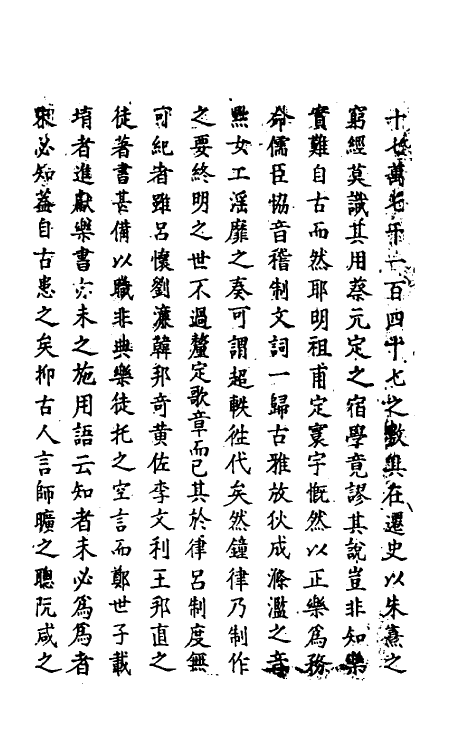 十七萬七千一百四十七之數具在遷史以朱熹之
窮經莫識其用蔡元定之宿學竟謬其說豈非知樂
實難自古而然耶明祖甫定寰宇慨然以正樂為務
命儒臣恊音稽制文詞一歸古雅放狄成滌濫之音
黜女工淫靡之奏可謂超軼徃代矣然鐘律乃制作
之要終明之世不過釐定歌章而已其於律呂制度無
可紀者雖呂懷劉濂韓邦奇黃佐李文利王邦直之
徒著書甚備以職非典樂徒托之空言而鄭世子載
堉者進獻樂書亦未之施用語云知者未必爲爲者
未必知葢自古患之矣抑古人言師曠之聰阮咸之